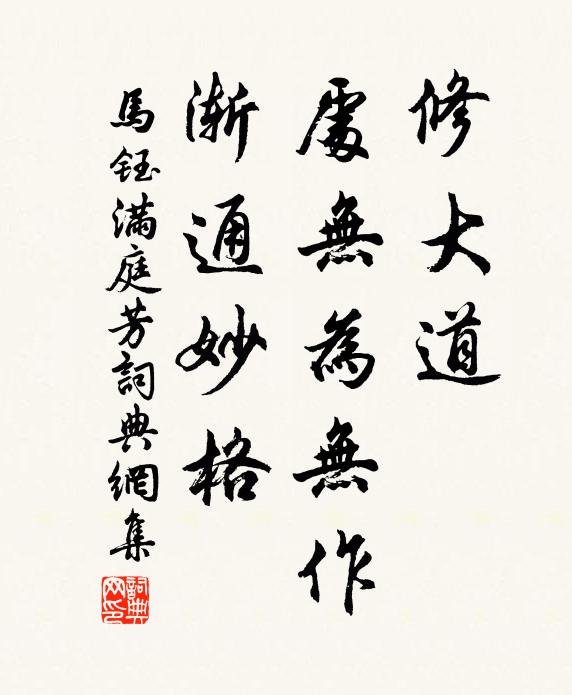 修大道
處無為無作
漸通妙格
馬鈺滿庭芳詞典網集
詞典网印